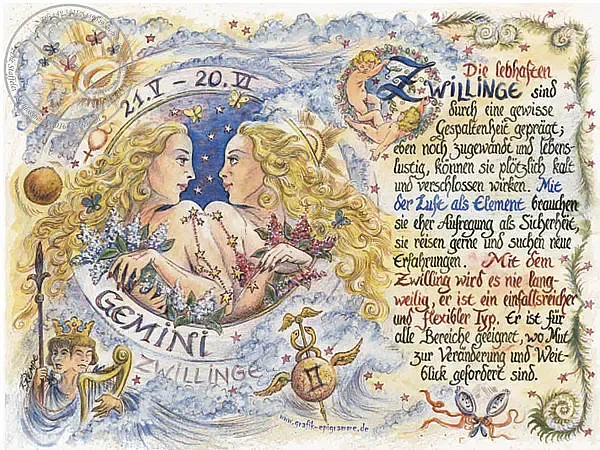 21.V 20.VI
GEMINI
ZWILLINGE
II
www.grafik-epigramme.de
Die lebhaften
ZWILLINGE sind
durch eine gewisse
Gespaltenheit geprägt;
eben noch zugewandt und lebens-
lustig, können sie plötzlich kalt
und verschlossen wirken. Mit
der Luft als Element brauchen
sie eher Aufregung als Sicherheit,
sie reisen gerne und suchen neue
Erfahrungen. Mit dem
Zwilling wird es nie lang-
weilig, er ist ein einfallsreicher
und flexibler Typ. Er ist für
alle Bereiche geeignet, wo Mut
zur Veränderung und Weit-
blick gefordert sind.